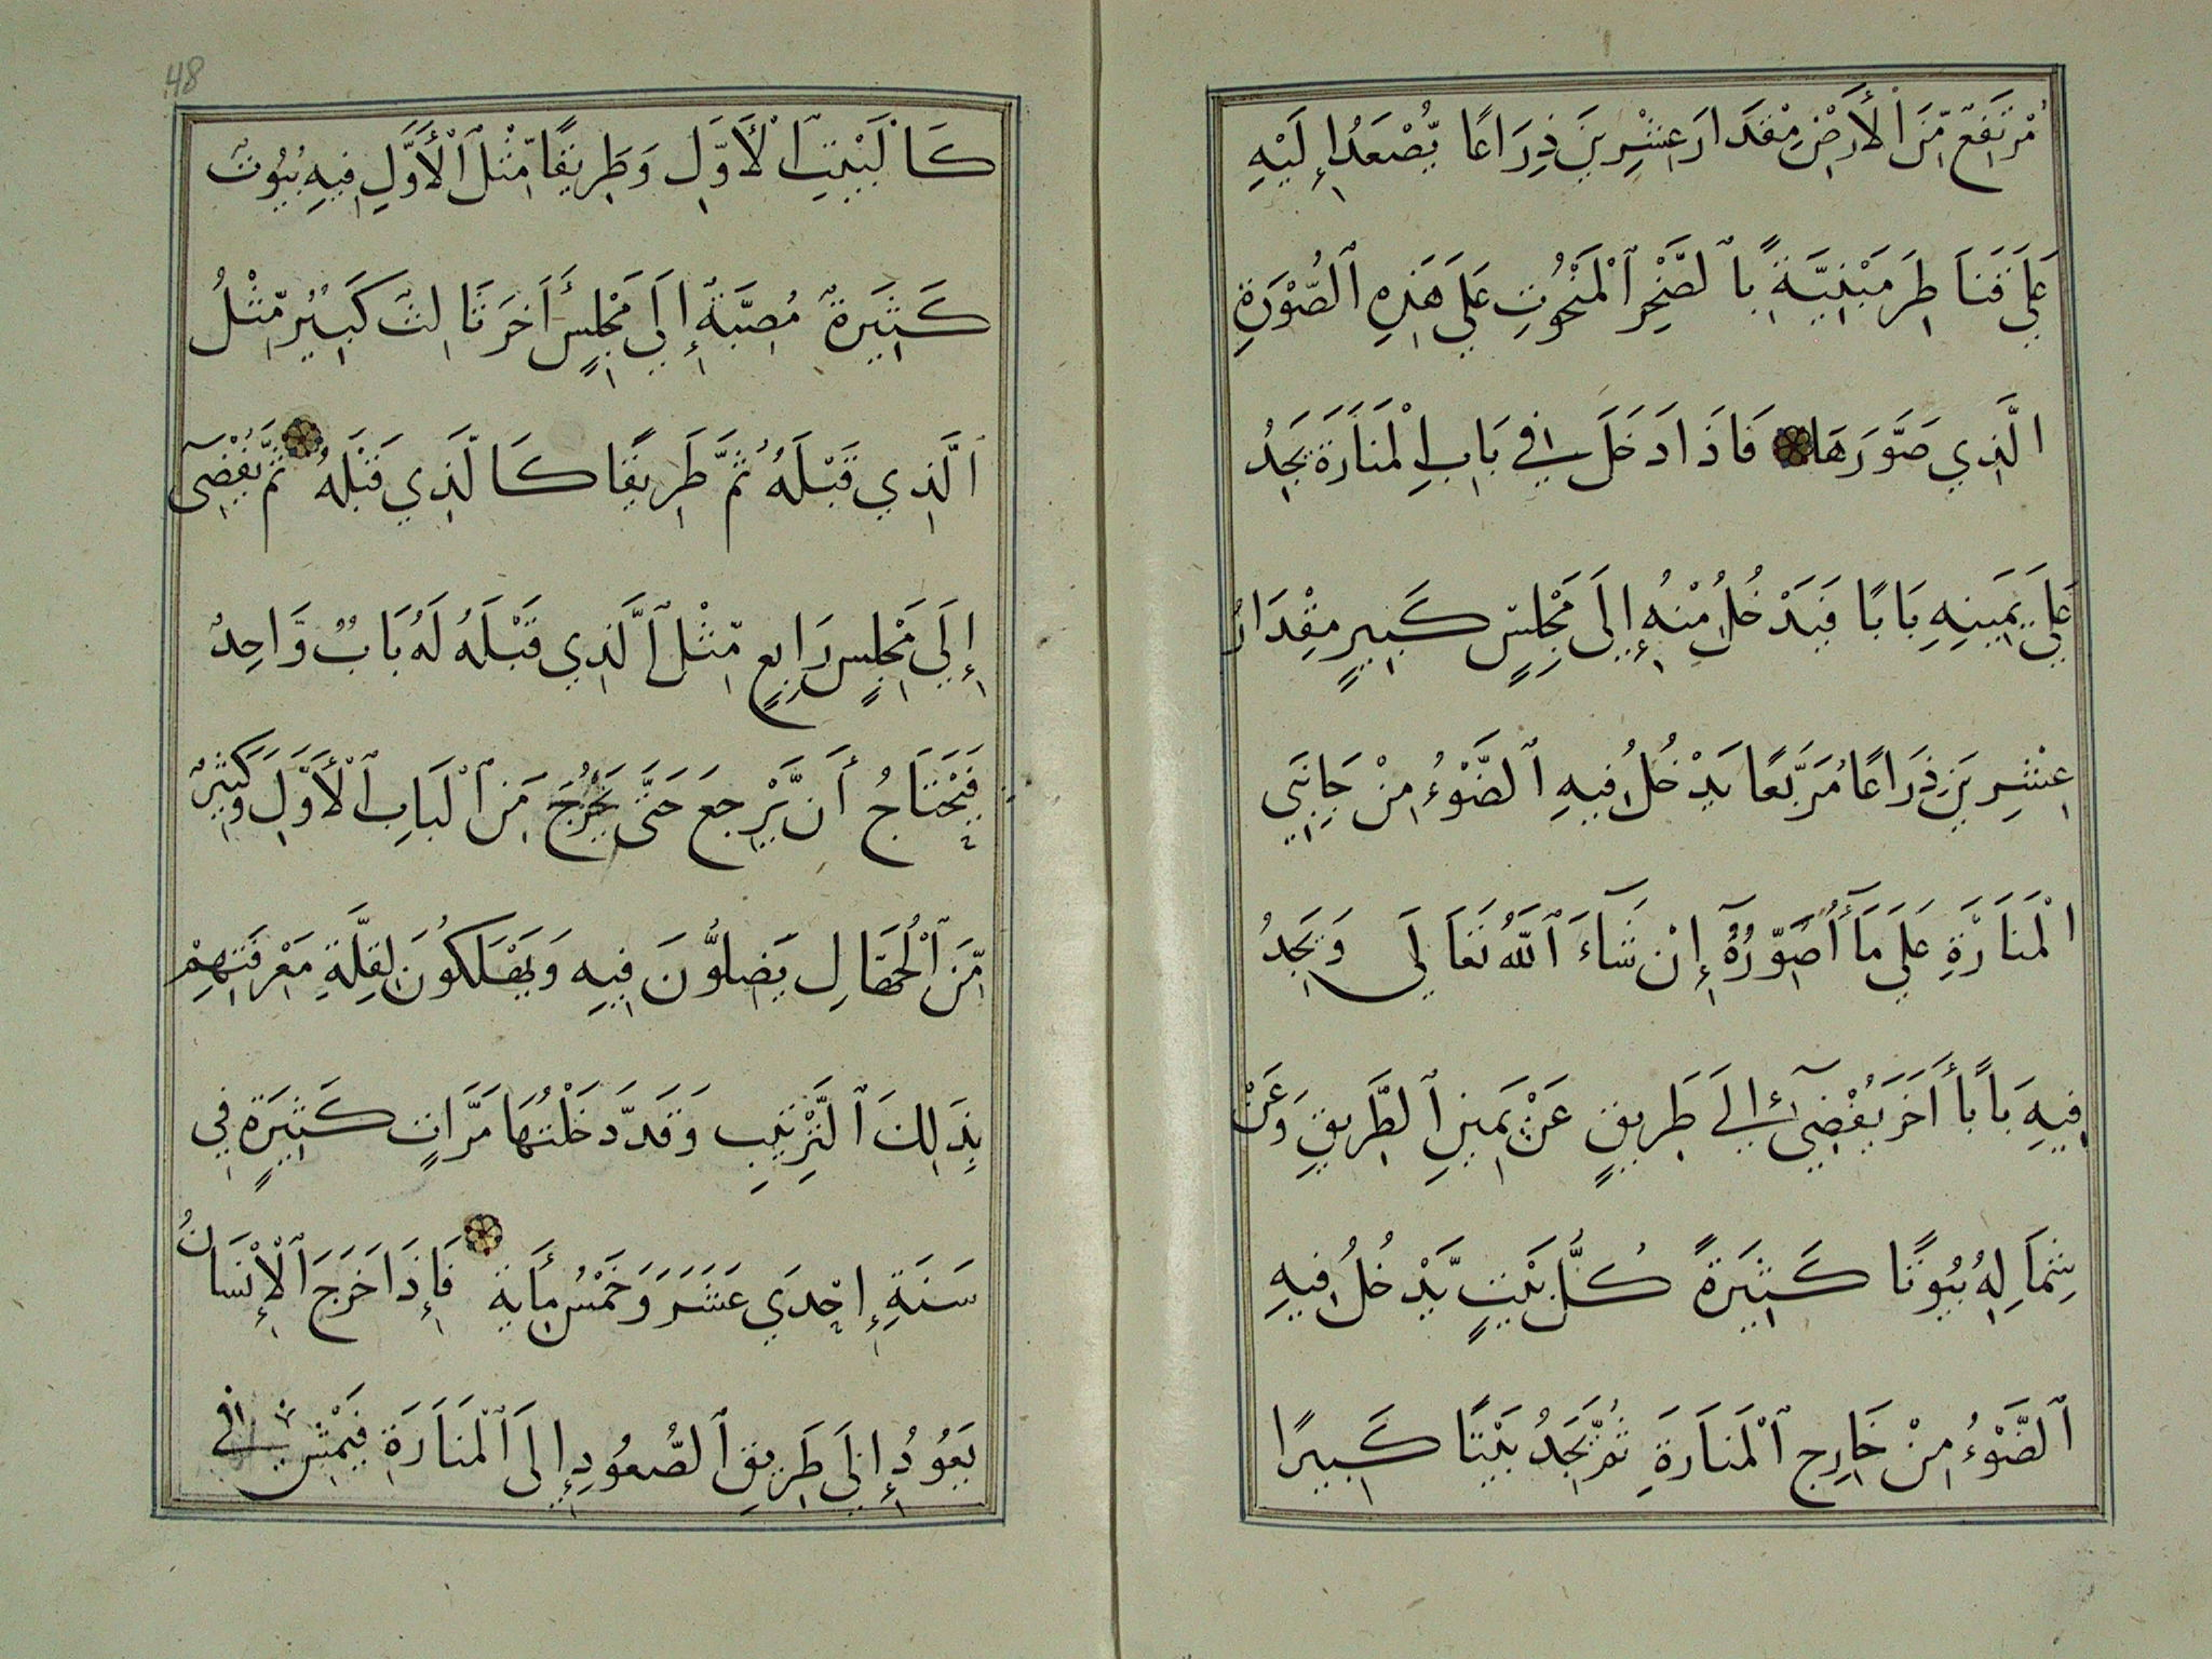 مُرْتَفِعٌ مِّنَ الْأَرْضِ مِقْدَارَ عِشْرِينَ ذِرَاعًا يُّصْعَدُ إِلَيْهِ
عَلَي قَنَاطِرَ مَبْنِيَّةً بِالصَّخْرِ الْمَنْحُوتِ عَلَي هَذِهِ الصُّوْرَةِ
الَّذِي صَوَّرَهَا فَاذَا دَخَلَ فِي بَابِ الْمَنَارَةِ يَجِدُ
عَلَي يَمِينِهِ بَابًا فَيَدْخُلُ مِنْهُ إِلَى مَجْلِسٍ كَبِيرٍ مِقْدَارُ
عِشْرِينَ ذِرَاعًا مُرَبَّعًا يَدْخُلُ فِيهِ الضَّوْءُ مِنْ جَانِبَيِ
الْمَنَارَةِ عَلَي مَا أُصَوِّرُهُ إِنْ شَاءَ اللَّهُ تَعَالَي وَيَجِدُ
فِيهِ بَابًا أَخَرَ يُفْضِي إِلَي طَرِيقٍ عَنْ يَمِينِ الطَّرِيقِ وَعَنْ
شِمَالِهِ بُيُوتًا كَثِيرَةً كُلُّ بَيْتٍ يَّدْخُلُ فِيهِ
الضَّوْءُ مِنْ خَارِجِ الْمَنَارَةِ ثُمَّ يَجِدُ بَيْتًا كَبِيرًا
48
كَالْبَيْتِ الْأَوَّلِ وَطَرِيقًا مِّثْلَ الْأَوَّلِ فِيهِ بُيُوتٌ
كَثِيرَةٌ مُصِبَّةٌ إِلَي مَجْلِسٍ أَخَرَ ثَالِثٍ كَبِيْرٍ مِّثْلُ
الَّذِي قَبْلَهُ ثُمَّ طَرِيقًا كَالَّذِي قَبْلَهُ ثُمَّ يُفْضِي
إِلَي مَجْلِسٍ رَابِعٍ مِّثْلِ الَّذِي قَبْلَهُ لَهُ بَابٌ وَّاحِدٌ
فَيَحْتَاجُ أَن يَّرْجِعَ حَتَّي يَخْرُجَ مَن الْبَابِ الْأَوَّلِ وَكَثِيرٌ
مِّنَ الْجُهَّالِ يَضِلُّونَ فِيهِ وَيَهْلَكُونَ لِقِلَّةِ مَعْرِفَتِهِمْ
بِذَلِكَ التَّرْتِيبِ وَقَد دَّخَلْتُهَا مَرَّاتٍ كَثِيرَةٍ فِي
سَنَةِ إِحْدَي عَشَرَ وَخَمْسُ مِأَيَةٍ فَإِذَا خَرَجَ الْإِنْسَانُ
يَعُوُدُ إِلَى طَرِيقِ الصُّعُوُدِ إِلَى الْمَنَارَةِ فَيَمْشِي فِي